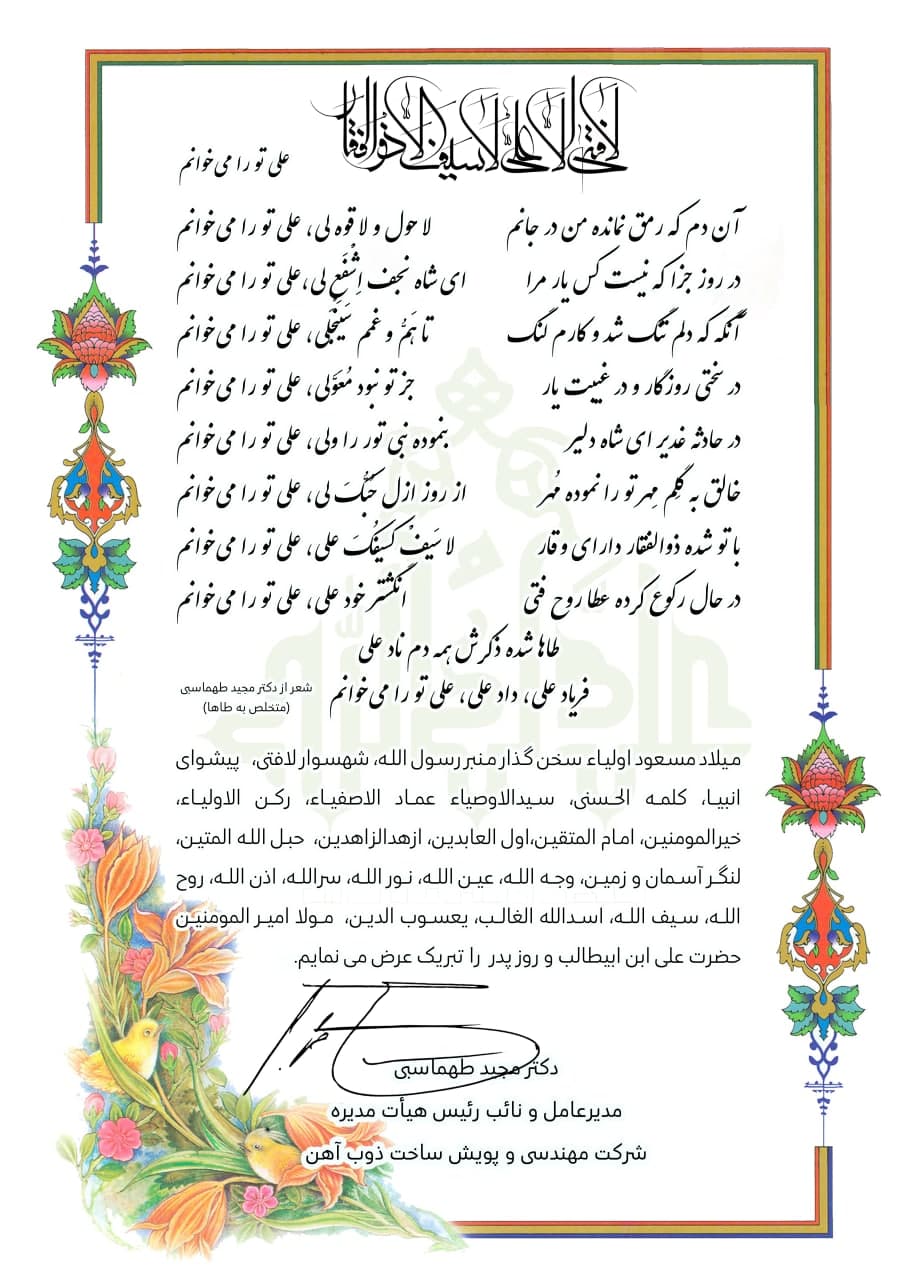 لا فتی الا علی لا سیف الا ذوالفقار
علی تو را می‌خوانم
آن دم که رمق نمانده من در جانم لا حول و لا قوه لی، علی تو را می‌خوانم
در روز جزا که نیست کس یار مرا ای شاه نجف اِشْفَعِ لی، علی تو را می‌خوانم
آنگه که دلم تنگ شد و کارم لنگ تا هَمُّ و غمم سَیَنْجَلی، علی تو را می‌خوانم
در سختی روزگار و در غیبت یار جز تو نبود مُعَوَّلی، علی تو را می‌خوانم
در حادثه غدیر ای شاه دلیر بنموده نبی تور را ولی، علی تو را می‌خوانم
خالق به گِلم مِهر تو را نموده مُهر از روز ازل حُبُّکَ لی، علی تو را می‌خوانم
با تو شده ذوالفقار دارای وقار لا سَیفْ کَسیفُکَ علی، علی تو را می‌خوانم
در حال رکوع کرده عطا روح فتی انگشتر خود علی، علی تو را می‌خوانم
طاها شده ذکرش همه دم ناد علی
فریاد علی، داد علی، علی تو را می‌خوانم
شعر از دکتر مجید طهماسبی
(متخلص به طاها)
میلاد مسعود اولیاء سخن گذار منبر رسول الله، شهسوار لافتی، پیشوای
انبیا، کلمه الحسنی، سیدالاوصیاء عماد الاصفیاء، رکن الاولیاء،
خیرالمومنین، امام المتقین،اول العابدین، ازهدالزاهدین، حبل الله المتین،
لنگر آسمان و زمین، وجه الله، عین الله، نور الله، سرالله، اذن الله، روح
الله، سیف الله، اسدالله الغالب، یعسوب الدین، مولا امیر المومنین
حضرت علی ابن ابیطالب و روز پدر را تبریک عرض می نمایم.
دکتر مجید طهماسبی
مدیرعامل و نائب رئیس هیأت مدیره
شرکت مهندسی و پویش ساخت ذوب آهن